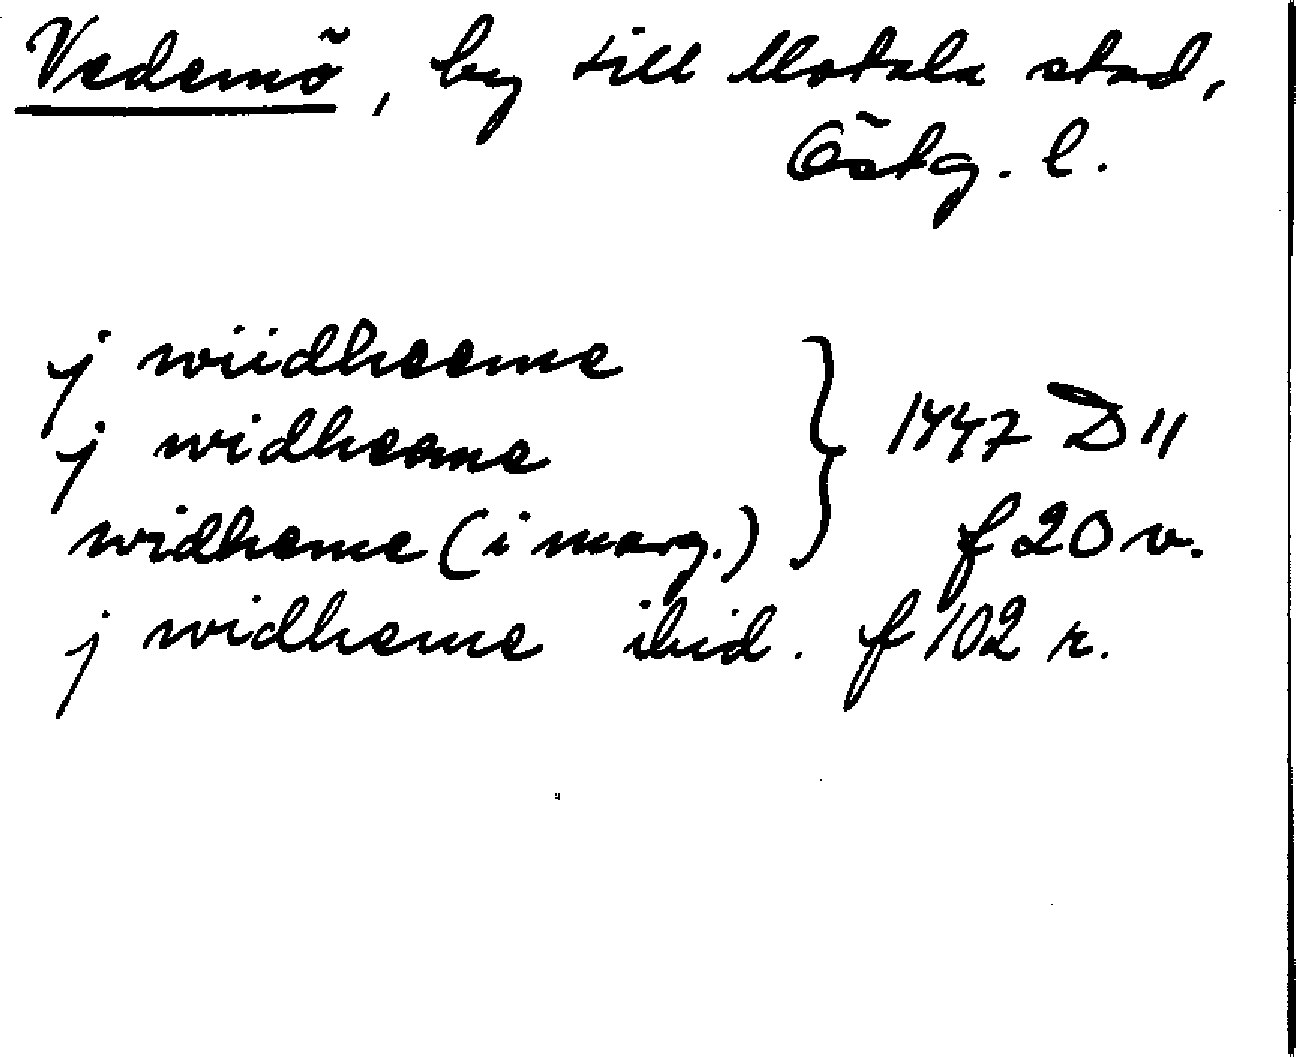 Vedemö, by till Motala stad,
Östg. l.
j wiidheeme
j widheme
widheme (i marg.)
1447 D 11
f 20 v.
j widheme ibid. f 102 r.